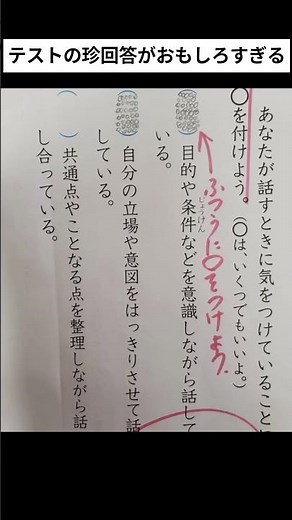 テストの珍回答がおもしろすぎる
あなたが話すときに気をつけていることに
〇を付けよう。(〇は、いくつでもいいよ。)
ふつうに〇をつけよう。
目的や条件などを意識しながら話して
じょうけん
いる。
自分の立場や意図をはっきりさせて話
している。
共通点やことなる点を整理しながら話
し合っている。